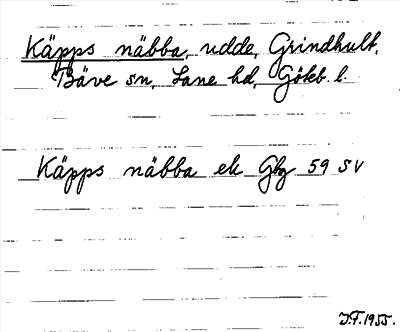 Käpps näbba, udde, Grindhult,
Bäve sn, Lane hd, Göteb. l.
Käpps näbba ek Gbg 59 SV
I.F. 1955.